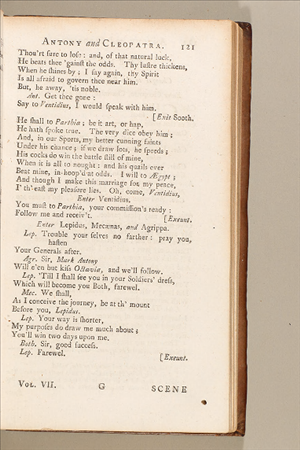 ANTONY and CLEOPATRA. 121
Thou'rt sure to lose: and, of that natural luck,
He beats thee 'gainst the odds. Thy lustre thickens,
When he shines by; I say again, thy Spirit
Is all afraid to govern thee near him.
But, he away, 'tis noble.
Ant. Get thee gone:
Say to Ventidius, I would speak with him.
[Exit Sooth.
He shall to Parthia; be it art, or hap,
He hath spoke true. The very dice obey him;
And, in our Sports, my better cunning faints
Under his chance; if we draw lots, he speeds;
His cocks do win the battle still of mine,
When it is all to nought: and his quails ever
Beat mine, in-hoop'd at odds. I will to Ægypt;
And though I make this marriage for my peace,
I' th' east my pleasure lies. Oh, come, Ventidius,
Enter Ventidius.
You must to Parthia, your commission's ready:
Follow me and receiv't. [Exeunt.
Enter Lepidus, Mecænas, and Agrippa.
Lep. Trouble your selves no further: pray you,
hasten
Your Generals after.
Agr. Sir, Mark Antony
Will e'en but kiss Octavia, and we'll follow.
Lep. 'Till I shall see you in your Soldiers' dress,
Which will become you Both, farewel.
Mec. We shall,
As I conceive the journey, be at th' mount
Before you, Lepidus.
Lep. Your way is shorter,
My purposes do draw me much about;
You'll win two days upon me.
Both. Sir, good success.
Lep. Farewel. [Exeunt.
VOL. VII. G SCENE